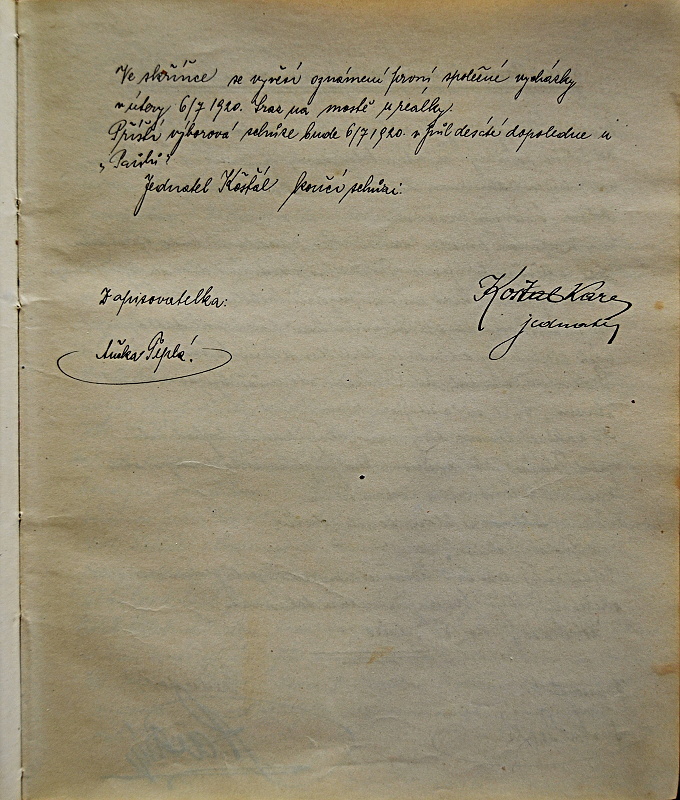 Ve skříňce se vyvěsí oznámení první společné vycházky
v úterý 6/7 1920. Sraz na mostě u reálky.
Příští výborová schůze bude 6/7 1920. v půl desáté dopoledne u
Jednatel Košťál končí schůzi.
Zapisovatelka:
Koštal Karel
jednatel